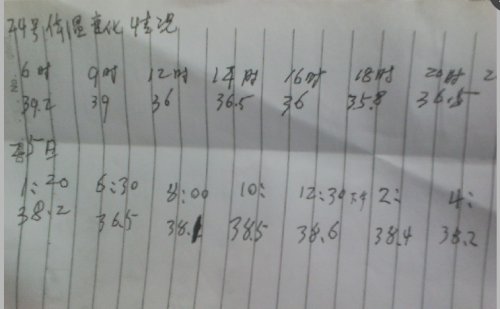 24号体温变化情况
6时 9时 12时 14时 16时 18时 20时 2
39.2 39 36 36.5 36 35.8 36.5
25日
1:20 6:30 8:00 10: 12:30 下午2: 4:
38.2 36.5 38.1 38.5 38.6 38.4 38.2